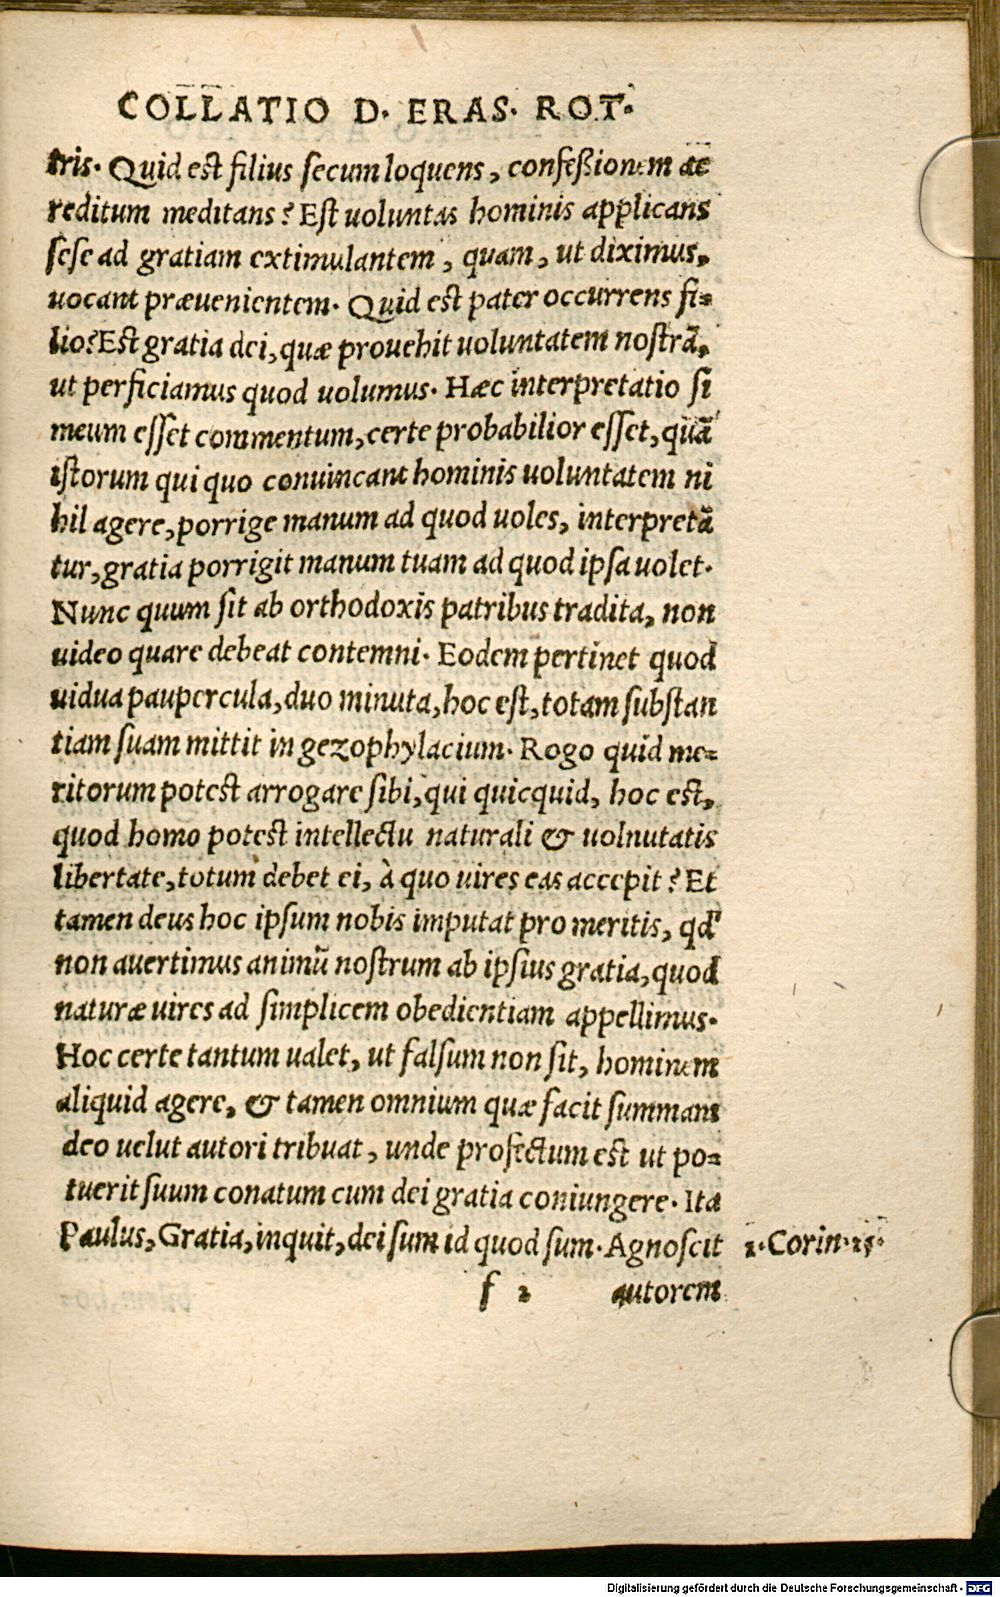 COLLATIO D. ERAS. ROT.
tris. Quid est filius secum loquens, confeßionem ac
reditum meditans? Est uoluntas hominis applicans
sese ad gratiam extimulantem, quam, ut diximus,
uocant præuenientem. Quid est pater occurrens fi-
lio? Est gratia dei, quæ prouehit uoluntatem nostrā,
ut perficiamus quod uolumus. Hæc interpretatio si
meum esset commentum, certe probabilior esset, quā
istorum qui quo conuincant hominis uoluntatem ni
hil agere, porrige manum ad quod uoles, interpretā
tur, gratia porrigit manum tuam ad quod ipsa uolet.
Nunc quum sit ab orthodoxis patribus tradita, non
uideo quare debeat contemni. Eodem pertinet quod
uidua paupercula, duo minuta, hoc est, totam substan
tiam suam mittit in gezophylacium. Rogo quid me-
ritorum potest arrogare sibi, qui quicquid, hoc est,
quod homo potest intellectu naturali & uolnutatis
libertate, totum debet ei, à quo uires eas accepit? Et
tamen deus hoc ipsum nobis imputat pro meritis, qd'
non auertimus animū nostrum ab ipsius gratia, quod
naturæ uires ad simplicem obedientiam appellimus.
Hoc certe tantum ualet, ut falsum non sit, hominem
aliquid agere, & tamen omnium quæ facit summam
deo uelut autori tribuat, unde profectum est ut po-
tuerit suum conatum cum dei gratia coniungere. Ita
Paulus, Gratia, inquit, dei sum id quod sum. Agnoscit
1. Corin. 15.
f 2 autorem
Digitalisierung gefördert durch die Deutsche Forschungsgemeinschaft - DFG